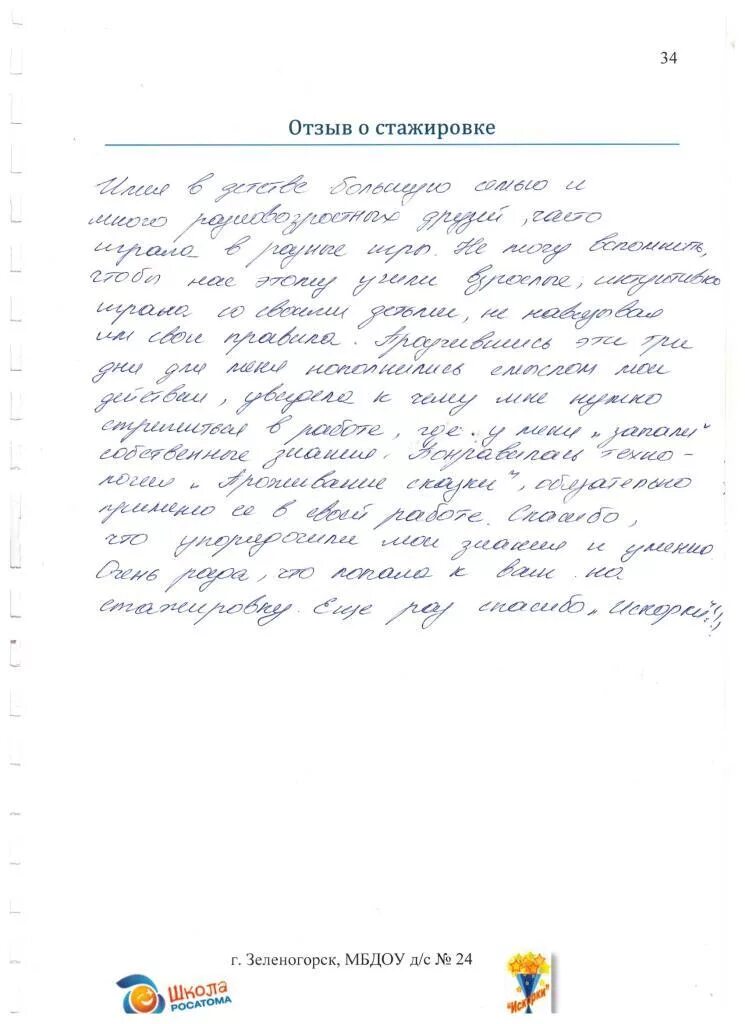 34
Отзыв о стажировке
Имея в детстве большую семью и
много разновозрастных друзей, часто
играла в разные игры. Не могу вспомнить,
чтобы нас этому учили взрослые, интуитивно
играла со своими детьми, не навязывая
им свои правила. Проучившись эти три
дня для меня наполнились смыслом мои
действия, увидела к чему мне нужно
стремиться в работе, где у меня „запали"
собственные знания. Понравилась техно-
логия „Проживание сказки", обязательно
применю ее в своей работе. Спасибо,
что упорядочили мои знания и умения
Очень рада, что попала к вам на
стажировку. Еще раз спасибо „Искорки"!!!
г. Зеленогорск, МБДОУ д/с № 24
Школа
РОСАТОМА
"Искорки"